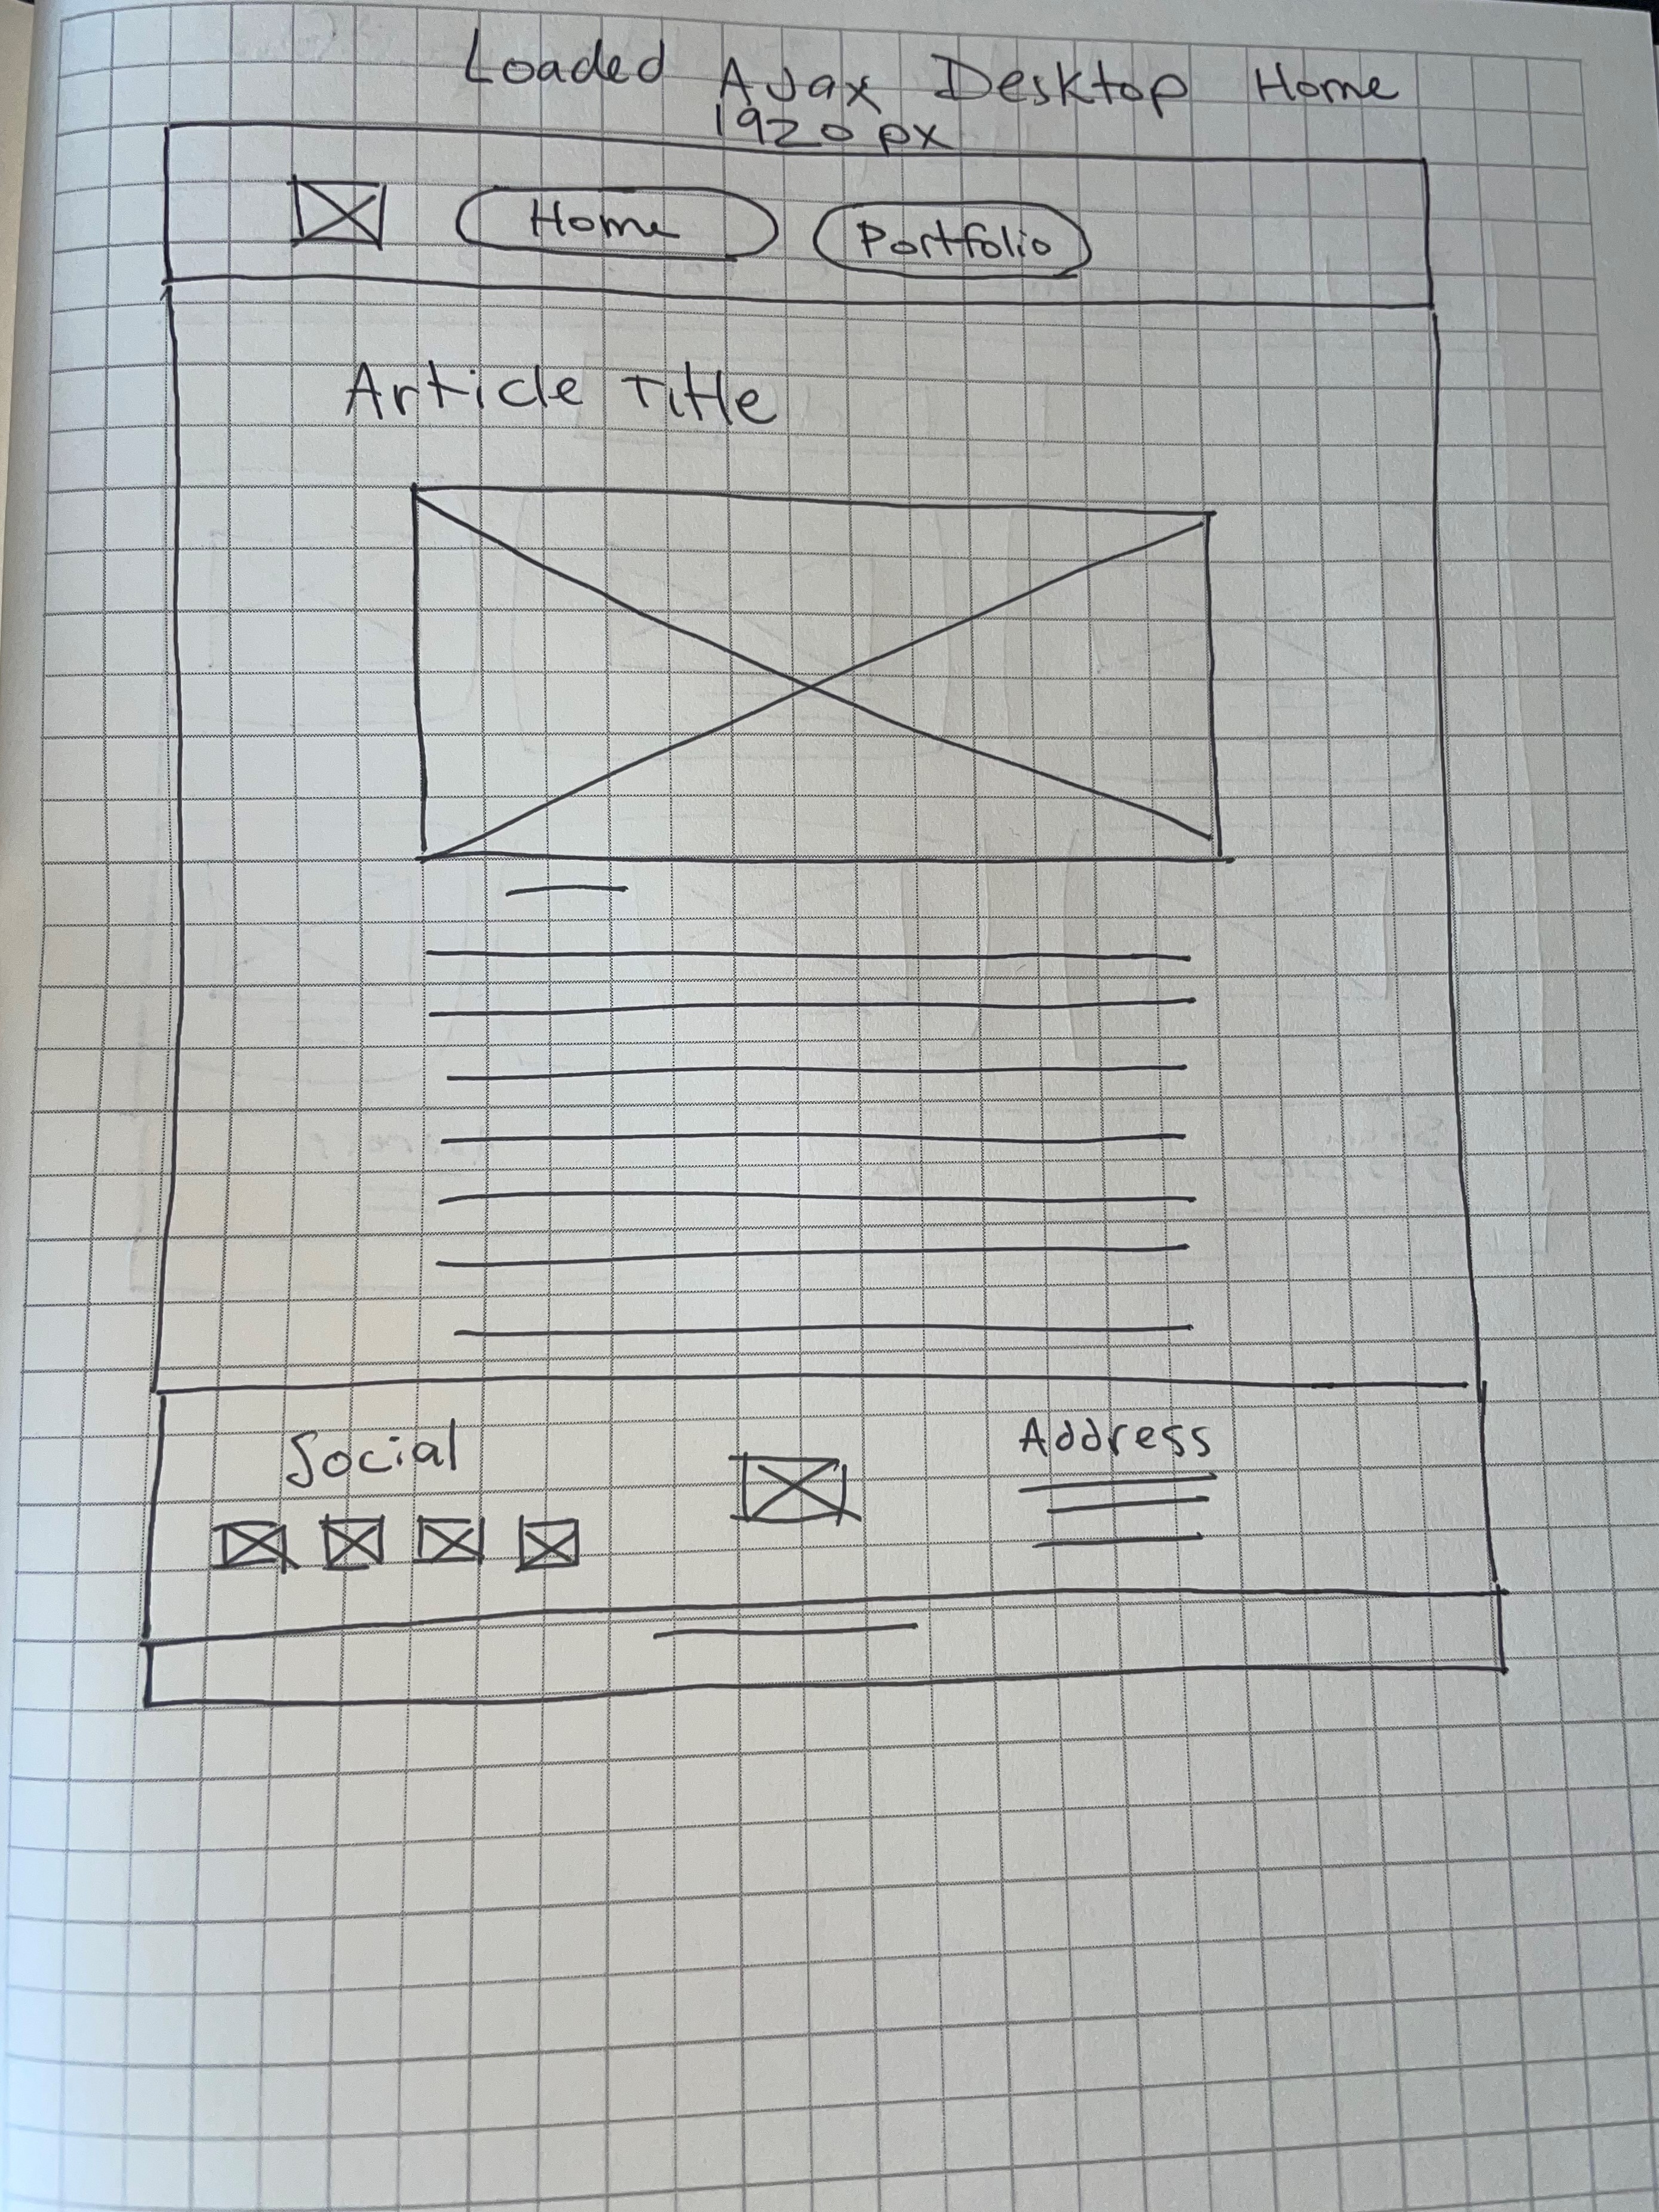 Loaded Ajax Desktop Home
1920px
Home Portfolio
Article Title
Social Address